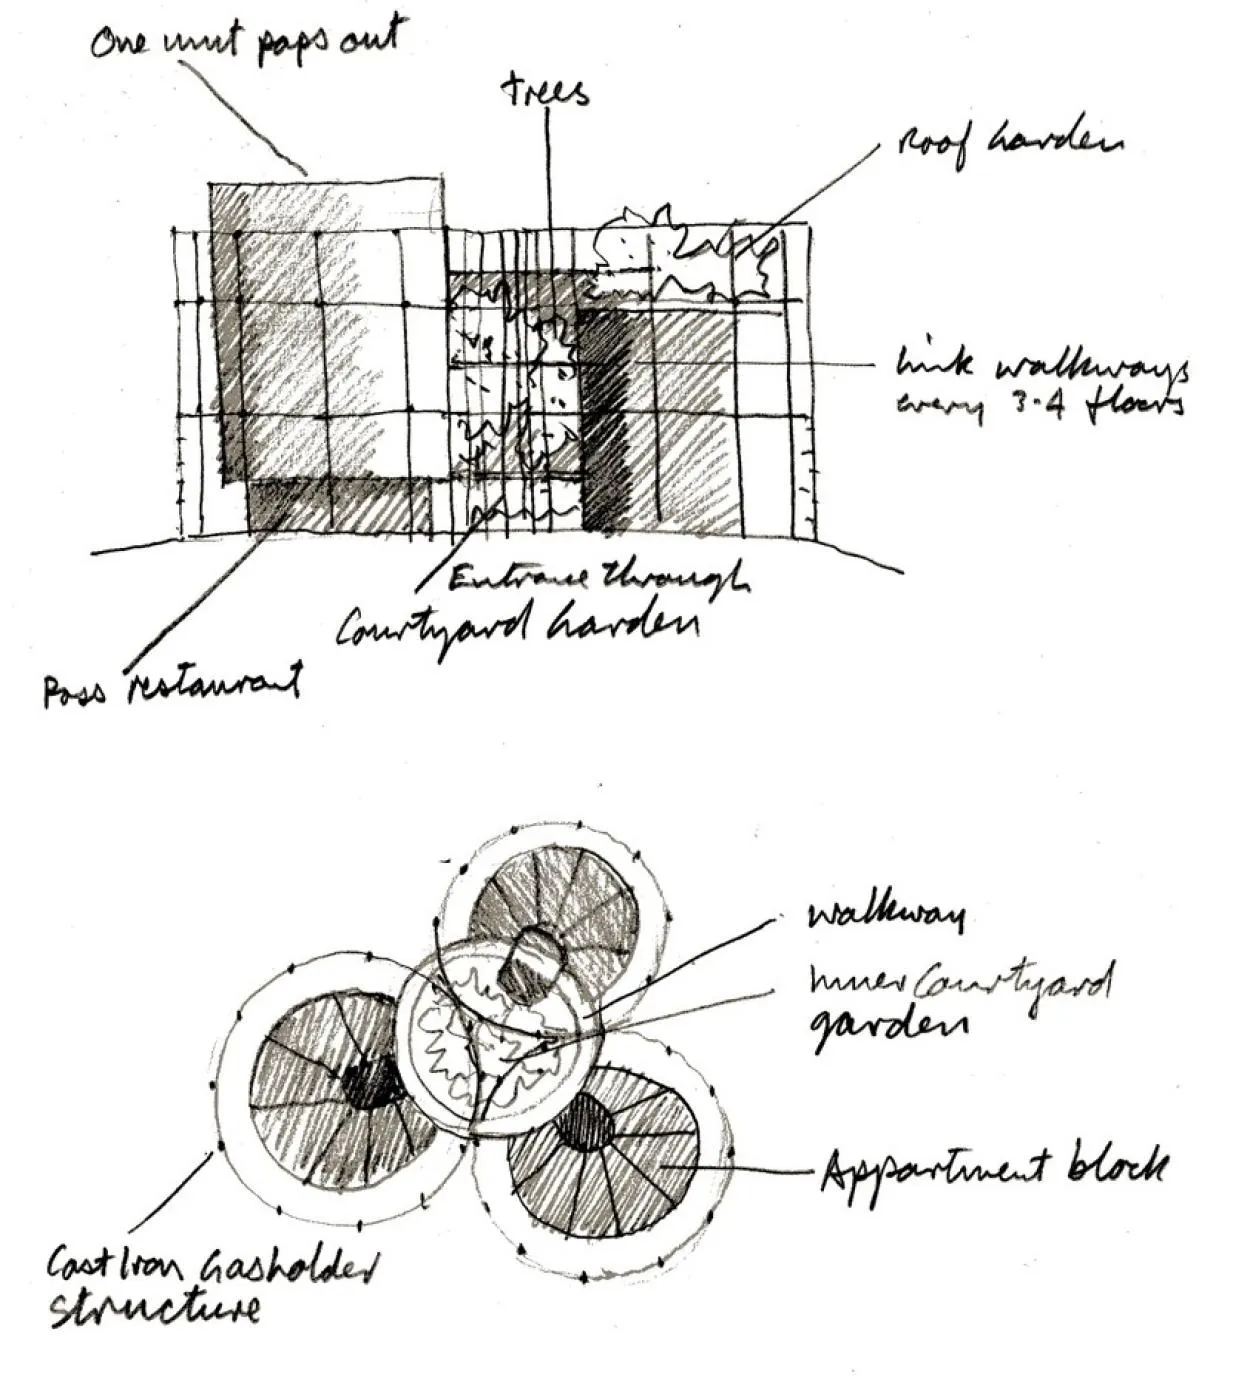 One unit pops out
trees
Roof Garden
Link walkways
every 3-4 floors
Entrance through
Courtyard Garden
Poss restaurant
walkway
Inner Courtyard
garden
Appartment block
Cast Iron Gasholder
structure